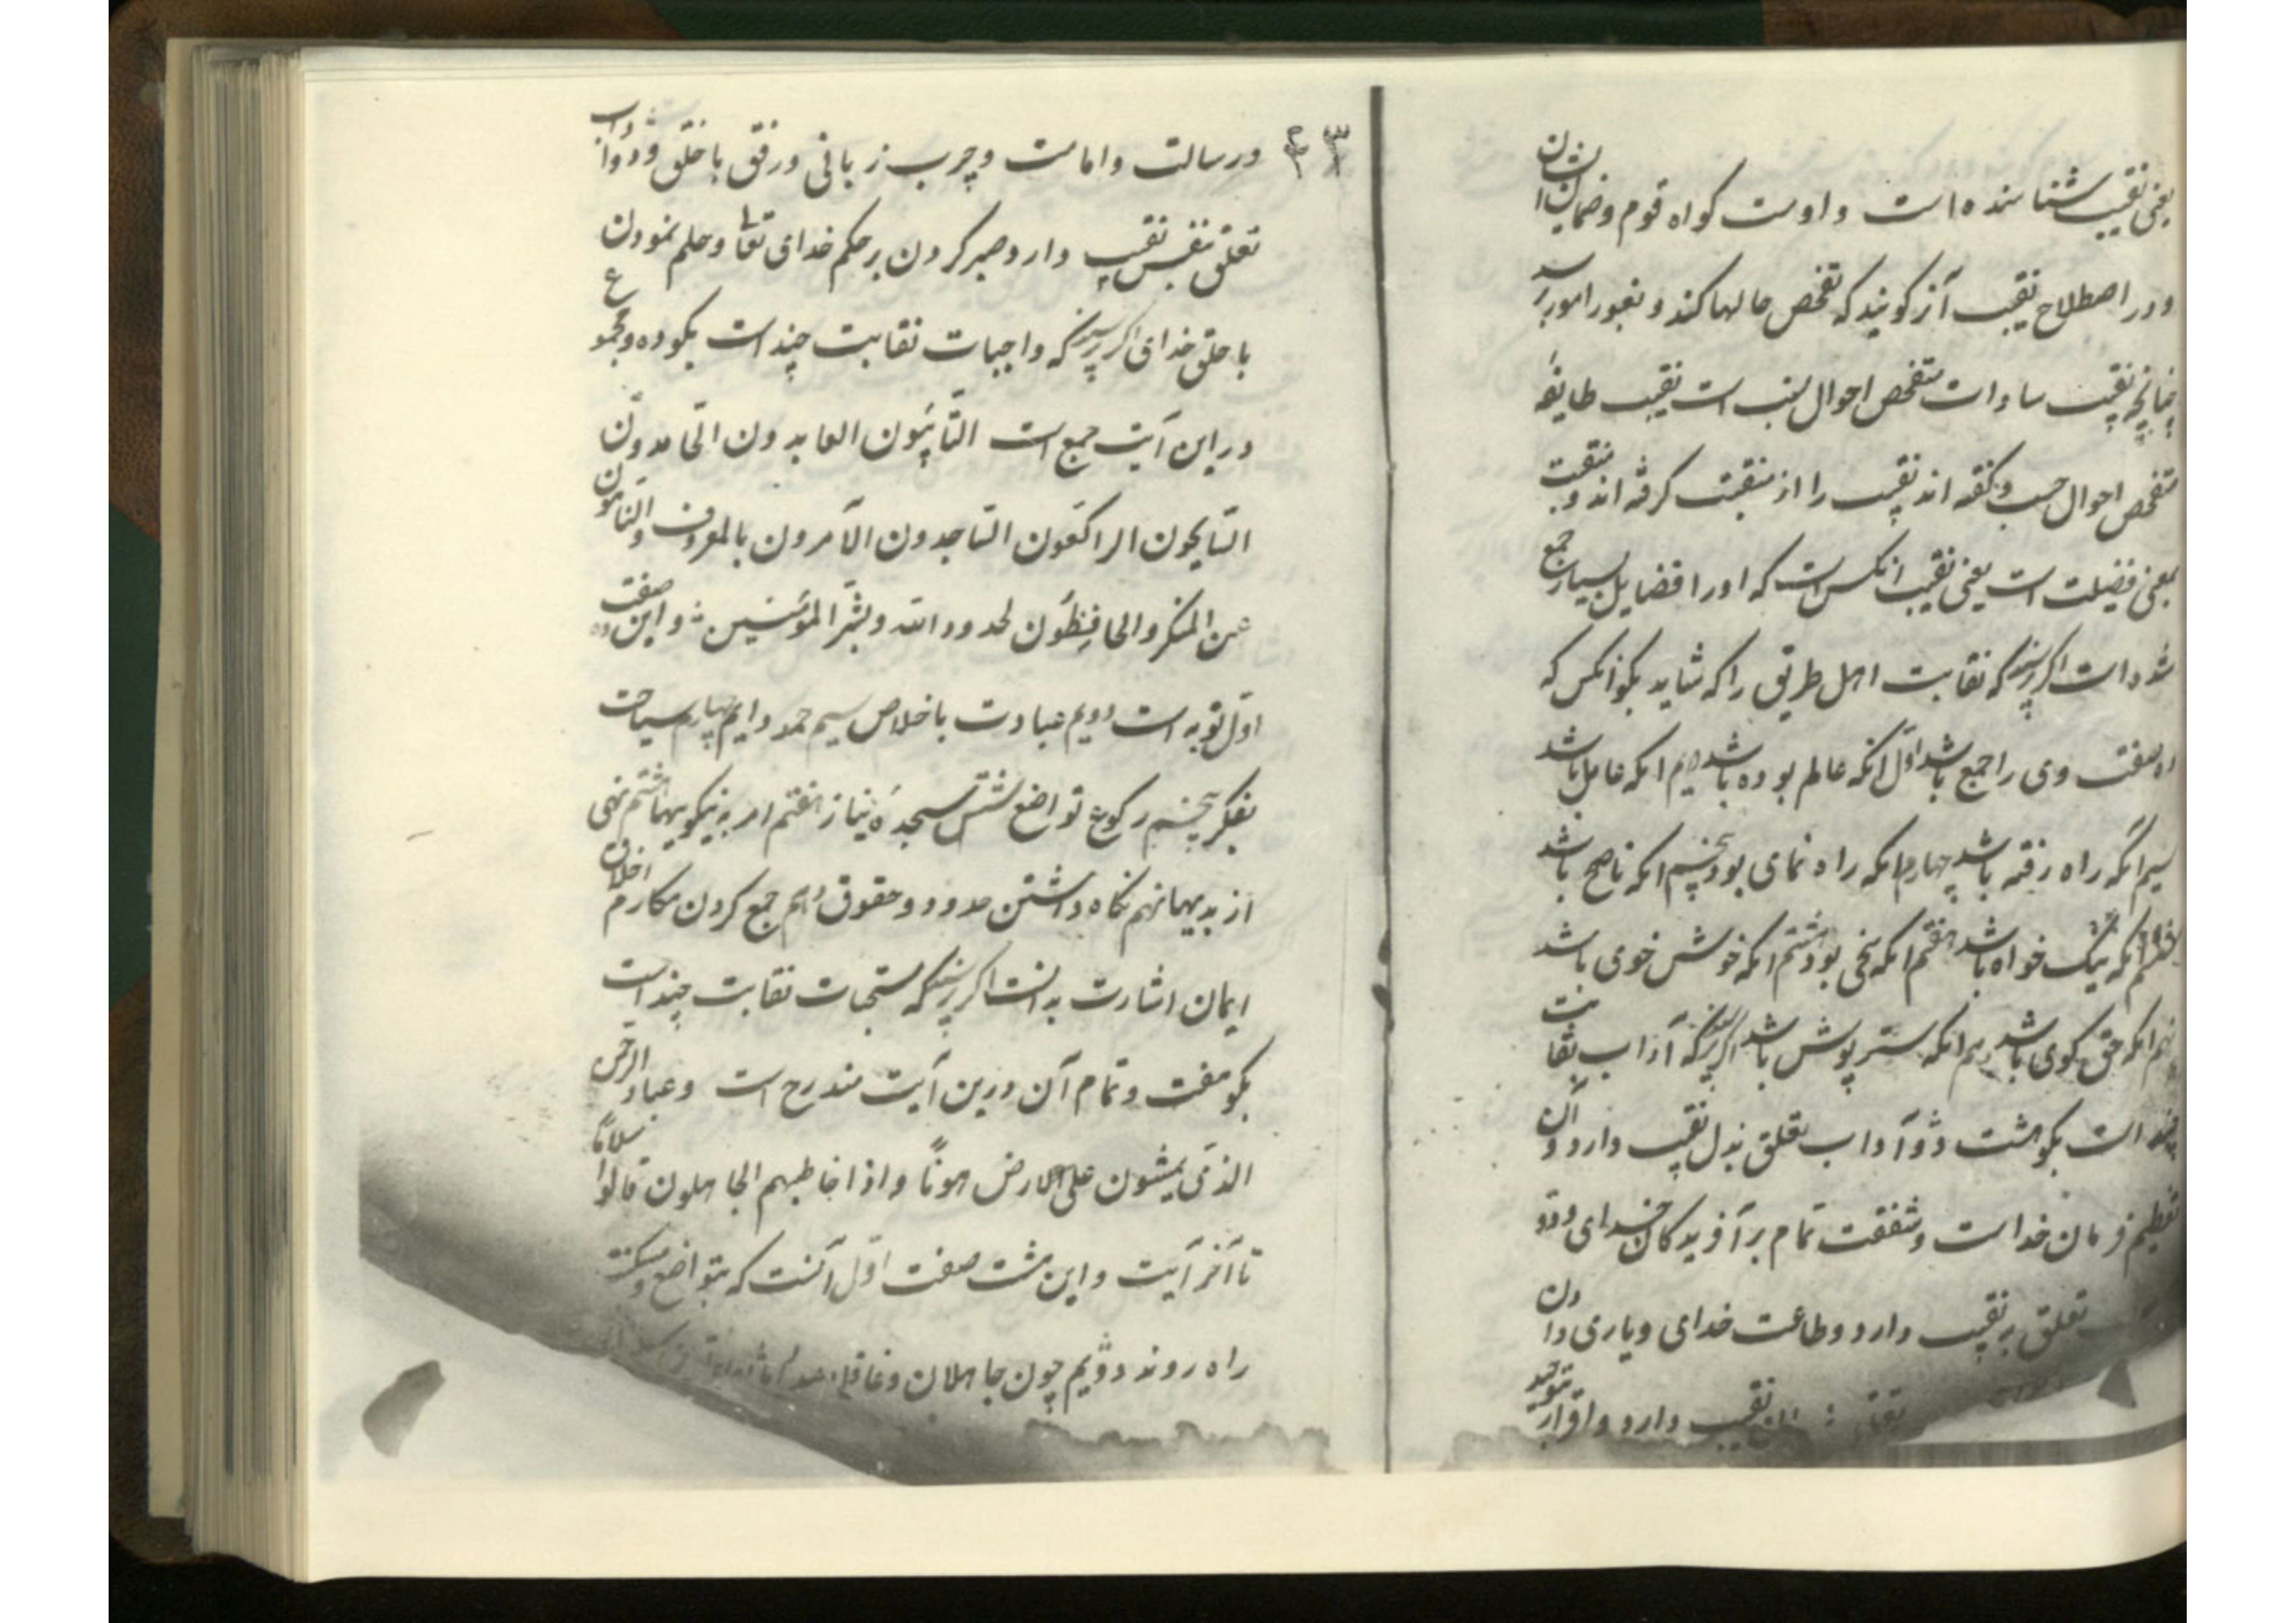 یعنی نقیب شناسنده است و اوست کواه قوم و ضمان ایشان
و در اصطلاح نقیب آنرا کویند که تفحص حالها کند و بغور امور رسد
چنانچه نقیب سادات متفحص احوال نسب است نقیب طایفه
متفحص احوال حسب و کفته اند نقیب را از منقبت کرفته اند و منقبت
بمعنی فضیلت است یعنی نقیب انکس است که اورا فضایل بسیار جمع
شده است اکر پرسند که نقابت اهل طریق را که شاید بکو انکس که
ده صفت وی را جمع باشد اول انکه عالم بوده باشد دویم انکه عامل باشد
سیم انکه راه رفته باشد چهارم انکه راه نمای بود پنجم انکه ناصح باشد
ششم انکه نیک خواه باشد هفتم انکه سخی بود هشتم انکه خوش خوی باشد
نهم انکه حق کوی باشد دهم انکه ستر پوش باشد اکر پرسند که آداب نقابت
چند است بکو هشت دو آداب تعلق بدل نقیب دارد و آن
تعظیم فرمان خداست و شفقت تمام بر آفریدکان خدای و دو
تعلق بر نقیب دارد و طاعت خدای و یاری دادن
نقیب دارد و اقرار بتوحید
۴۳
و رسالت و امامت و چرب زبانی و رفق با خلق و دو آداب
تعلق بنفس نقیب دارد صبر کردن بر حکم خدای تعا و حلم نمودن
با خلق خدای اکر پرسند که واجبات نقابت چند است بکو ده و مجموع
در این آیت جمع است التّآئبُون العابدون الحَامدونَ
السَّایحون الراکعون السَّاجدون الآمرون بالمعروف والنّاهون
عن المنکر والحافِظُون لحدود الله وبشّر المؤمنین و این ده صفت
اول توبه است دویم عبادت باخلاص سیم حمد دایم چهارم سیاحت
بفکر پنجم رکوع تواضع ششم سجدهٔ نیاز هفتم امر به نیکوییها هشتم نهی
از بدیها نهم نکاه داشتن حدود و حقوق دهم جمع کردن مکارم اخلاق
ایمان اشارت بدانست اکر پرسند که مستحبات نقابت چند است
بکو هفت و تمام آن درین آیت مندرج است وعباد الرحمن
الذیَن یمشون علی الارض هوناً واذا خاطبهم الجاهلون قالوا سلاماً
تا آخر آیت و این هشت صفت اول آنست که بتواضع و مسکنت
راه روند دویم چون جاهلان و غافلان